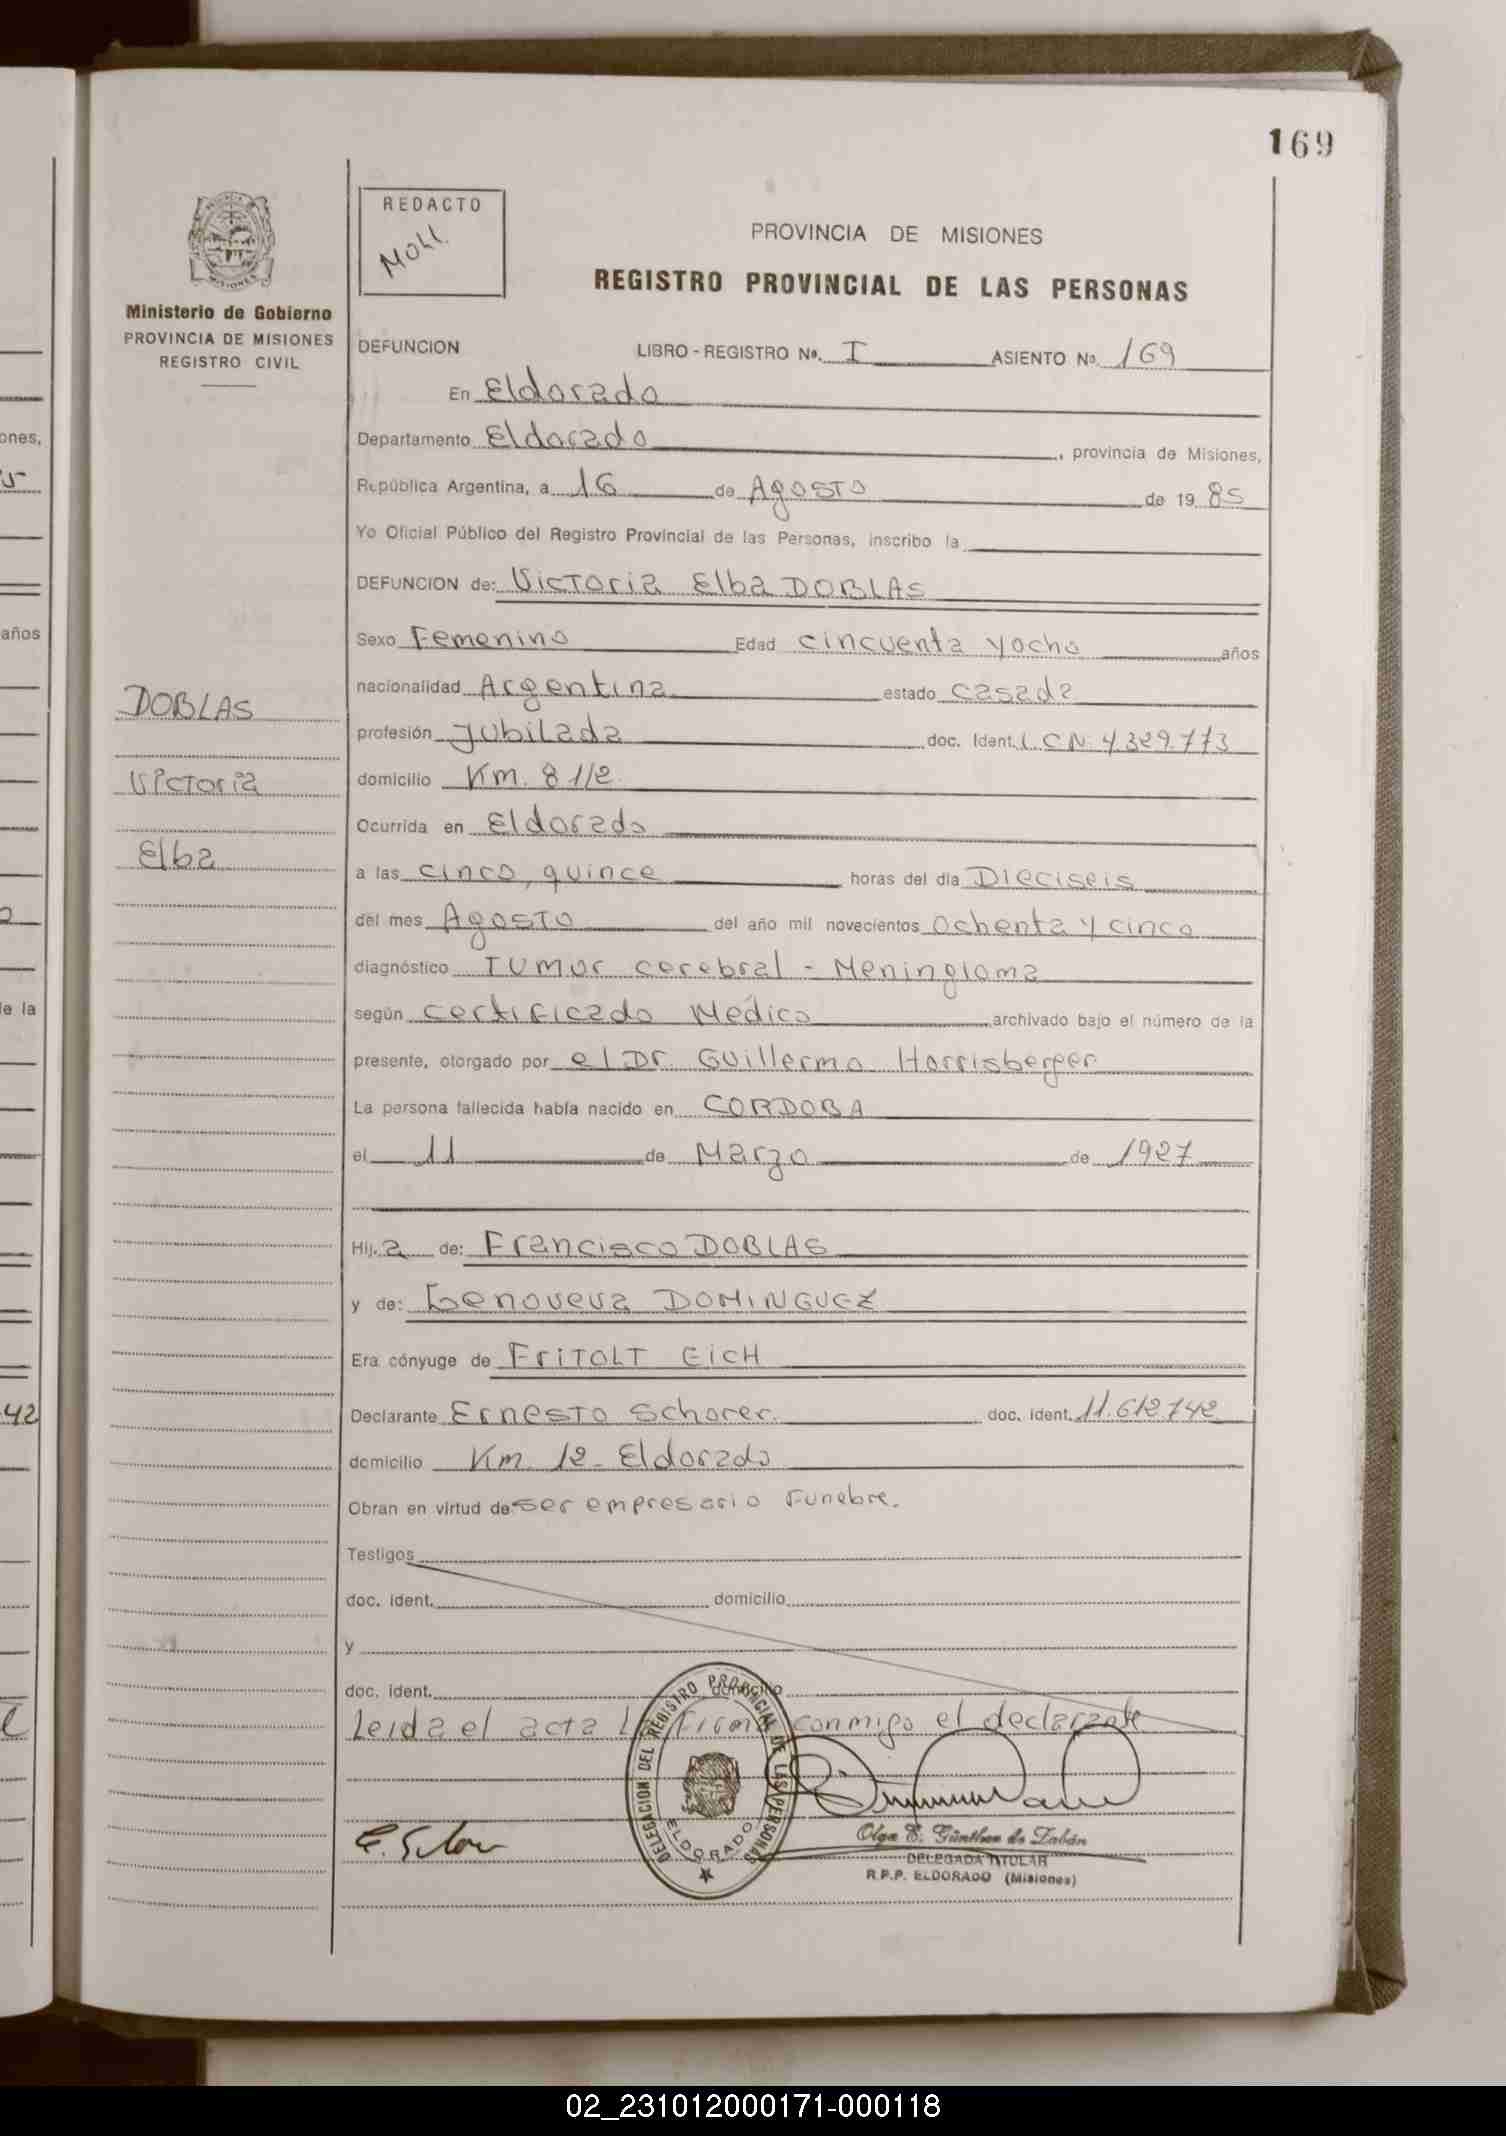 169
REDACTO
MOLL
PROVINCIA DE MISIONES
REGISTRO PROVINCIAL DE LAS PERSONAS
MISIONES
Ministerio de Gobierno
PROVINCIA DE MISIONES
REGISTRO CIVIL
DEFUNCION LIBRO - REGISTRO Nº. I ASIENTO Nº. 169
En Eldorado
Departamento Eldorado, provincia de Misiones,
República Argentina, a 16 de Agosto de 19 85
Yo Oficial Público del Registro Provincial de las Personas, inscribo la
DEFUNCION de: Victoria Elba DOBLAS
Sexo Femenino Edad cincuenta y ocho años
nacionalidad Argentina estado casada
profesión Jubilada doc. Ident. L.C.N. 4.329.773
domicilio Km. 8 1/2
Ocurrida en Eldorado
a las cinco, quince horas del día Dieciseis
del mes Agosto del año mil novecientos ochenta y cinco
diagnóstico Tumor cerebral - Meningioma
según certificado Médico archivado bajo el número de la
presente, otorgado por el Dr. Guillermo Harrisberger
La persona fallecida había nacido en CORDOBA
el 11 de Marzo de 1927
Hij a de: Francisco DOBLAS
y de: Genoveva DOMINGUEZ
Era cónyuge de FRITOLT EICH
Declarante Ernesto Schorer. doc. ident. 11.612.742
domicilio Km. 12 - Eldorado
Obran en virtud de ser empresario Funebre.
Testigos
doc. ident. domicilio
y
doc. ident. domicilio
Leida el acta la firma conmigo el declarante
DOBLAS
Victoria
Elba
DELEGACION DEL REGISTRO PROVINCIAL DE LAS PERSONAS
ELDORADO
Olga E. Günther de Zabán
DELEGADA TITULAR
R.P.P. ELDORADO (Misiones)
ones,
años
le la
42
02_231012000171-000118